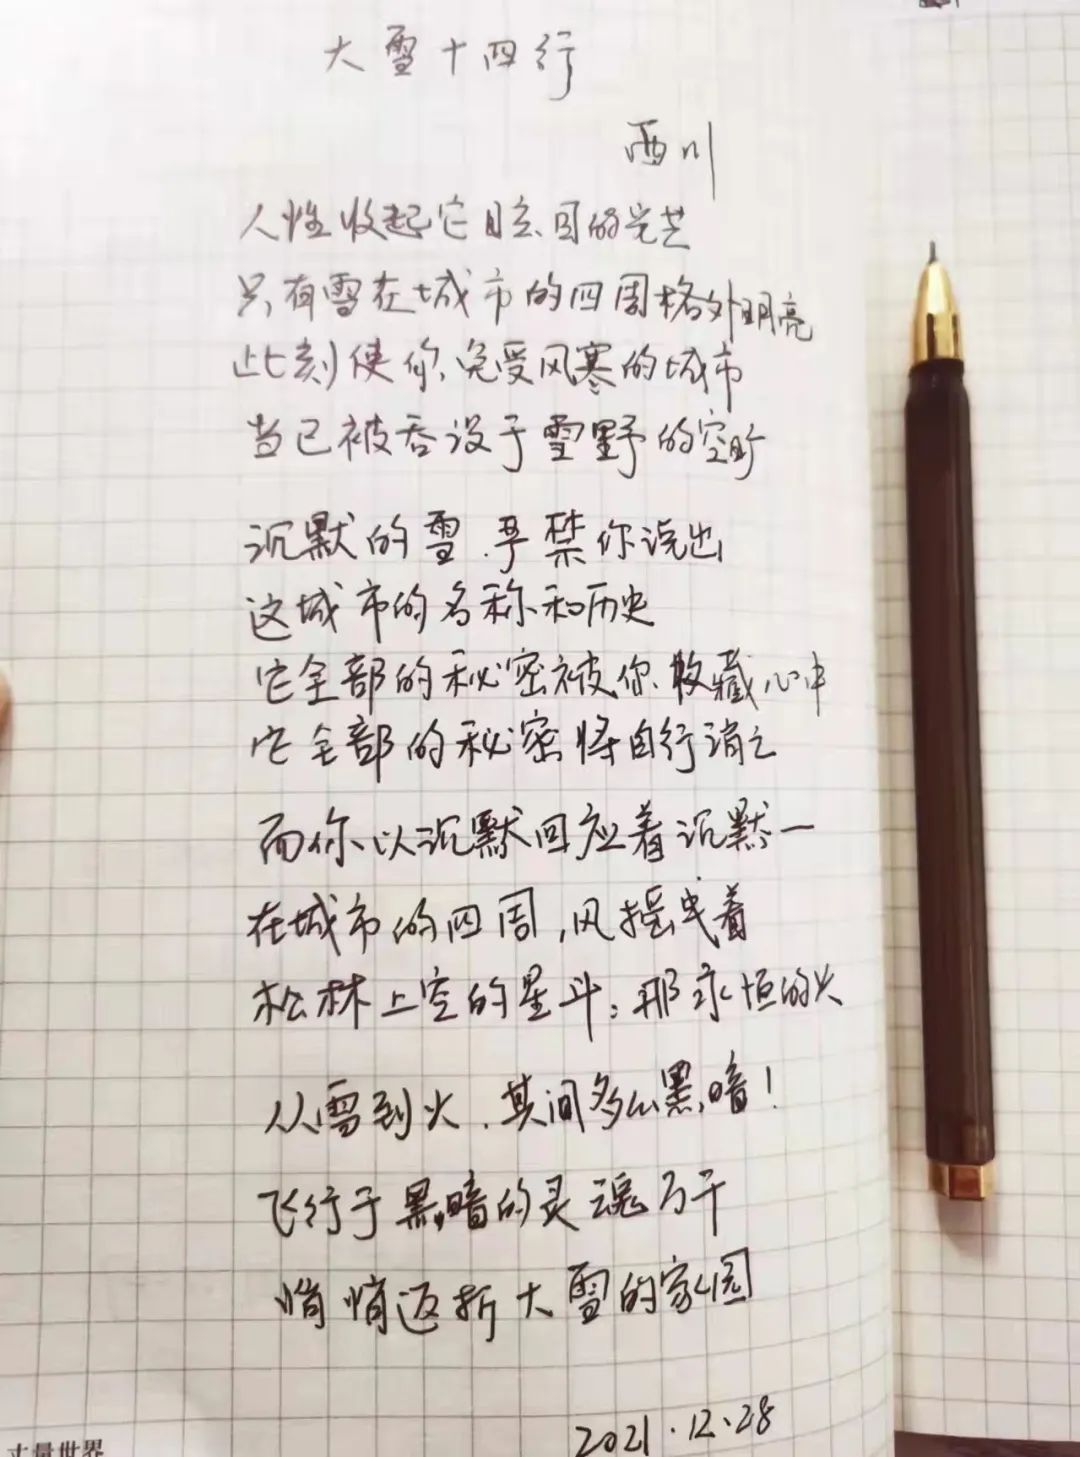 大雪十四行
西川
人性收起它眩目的光芒
只有雪在城市的四周格外明亮
此刻使你免受风寒的城市
当已被吞没于雪野的空旷
沉默的雪,严禁你说出
这城市的名称和历史
它全部的秘密被你收藏心中
它全部的秘密将自行消亡
而你以沉默回应着沉默一
在城市的四周,风摇曳着
松林上空的星斗:那永恒的火
从雪到火,其间多么黑暗!
飞行于黑暗的灵魂万千
悄悄返折大雪的家园
2021.12.28
丈量世界